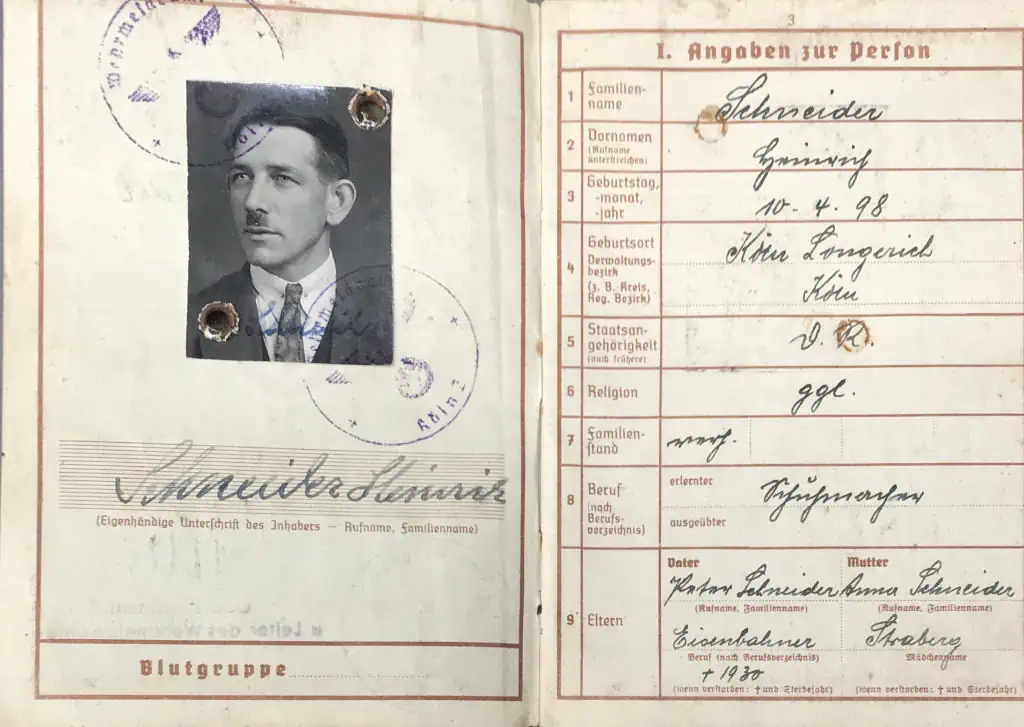 Wehrmeldeamt
Köln 2
Schneider Heinrich
(Eigenhändige Unterschrift des Inhabers — Rufname, Familienname)
Blutgruppe
3
I. Angaben zur Person
1 Familien-
name
Schneider
2 Vornamen
(Rufname
unterstreichen)
Heinrich
3 Geburtstag,
-monat,
-jahr
10-4.98
4 Geburtsort
Verwaltungs-
bezirk
(z. B. Kreis,
Reg. Bezirk)
Köln Longerich
Köln
5 Staatsan-
gehörigkeit
(auch frühere)
D. R.
6 Religion
ggl.
7 Familien-
stand
verh.
8 Beruf
(nach
Berufs-
verzeichnis)
erlernter
Schuhmacher
ausgeübter
9 Eltern
Vater
Mutter
Peter Schneider
Anna Schneider
(Rufname, Familienname)
(Rufname, Familienname)
Eisenbahner
Straberg
Beruf (nach Berufsverzeichnis)
Mädchenname
+ 1930
(wenn verstorben: † und Sterbejahr)
(wenn verstorben: † und Sterbejahr)